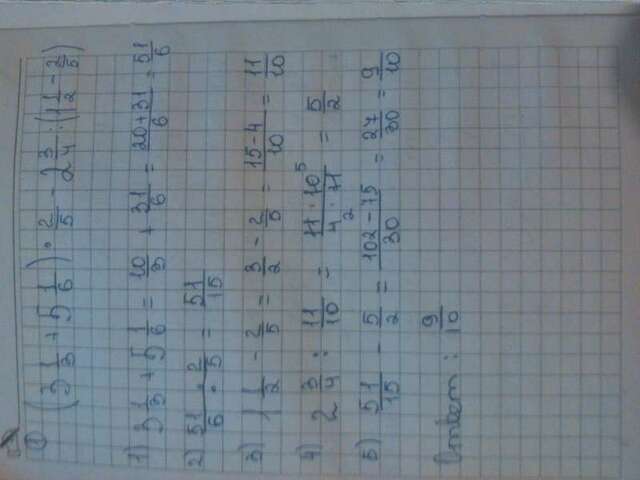 (3 1/3 + 5 1/6) · 2/5 - 2 3/4 : (1 1/2 - 2/5)
1) 3 1/3 + 5 1/6 = 10/3 + 31/6 = 20+31/6 = 51/6
2) 51/6 · 2/5 = 51/15
3) 1 1/2 - 2/5 = 3/2 - 2/5 = 15-4/10 = 11/10
4) 2 3/4 : 11/10 = 11 · 10 5/4 2 · 11 = 5/2
5) 51/15 - 5/2 = 102-75/30 = 27/30 = 9/10
Ответ: 9/10